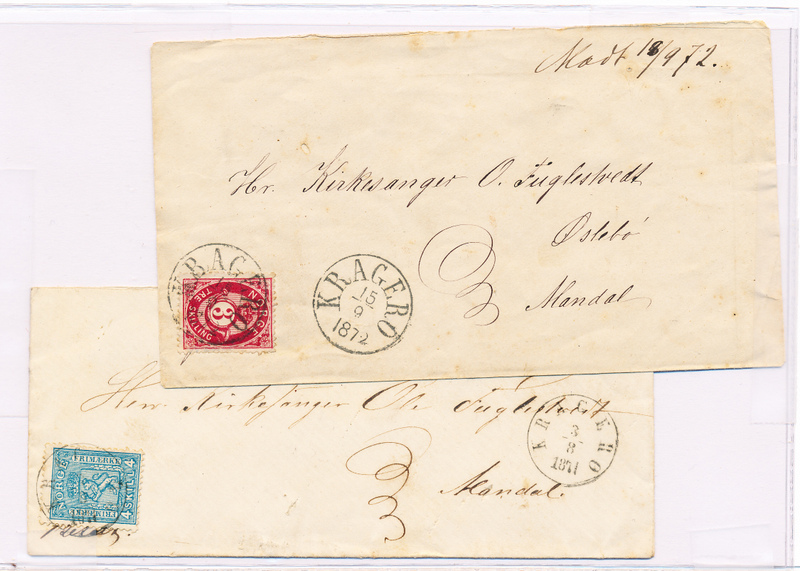 Modt 18/9 72.
Hr. Kirkesanger O. Fuglestvedt
Øslebö
Mandal
3
KRAGERØ
15
9
1872
KRAGERØ
NORGE
TRE SKILLING
3
Herr Kirkesanger Ol. Fuglestvedt
3
Mandal.
KRAGERO
3
8
1871
NORGE
FRIMÆRKE
4 SKILL 4
FRIMÆRKE